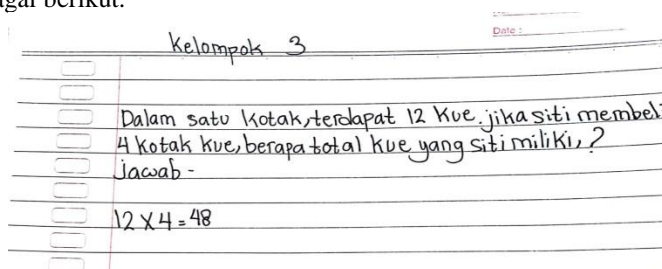 agai berikut:
Date :
Kelompok 3
Dalam satu kotak, terdapat 12 kue. jika siti membeli
4 kotak kue, berapa total kue yang siti miliki, ?
jawab -
12 X 4 = 48